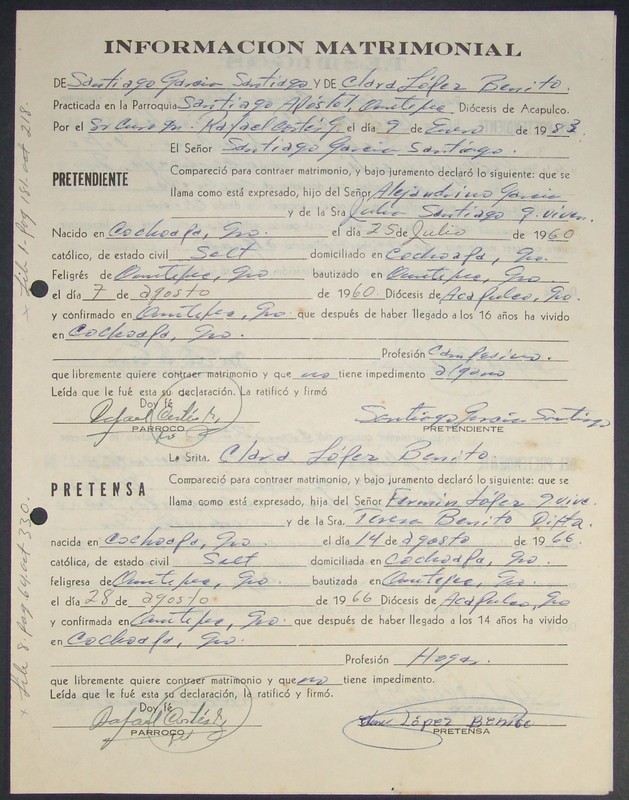 INFORMACION MATRIMONIAL
DE Santiago Garcia Santiago Y DE Clara López Benito.
Practicada en la Parroquia Santiago Apóstol, Ometepec Diócesis de Acapulco.
Por el Sr Cura Dn. Rafael Cortés G. el día 9 de Enero de 1983
El Señor Santiago Garcia Santiago.
PRETENDIENTE
Compareció para contraer matrimonio, y bajo juramento declaró lo siguiente: que se
llama como está expresado, hijo del Señor Alejandrino Garcia
y de la Sra Julia Santiago q. viven.
Nacido en Cochoapa, Gro. el día 25 de Julio de 1960
católico, de estado civil Solt domiciliado en Cochoapa, Gro.
Feligrés de Ometepec, Gro bautizado en Ometepec, Gro
el día 7 de agosto de 1960 Diócesis de Acapulco, Gro.
y confirmado en Ometepec, Gro. que después de haber llegado a los 16 años ha vivido
en Cochoapa, Gro.
Profesión Campesino.
que libremente quiere contraer matrimonio y que no tiene impedimento alguno
Leída que le fué esta su declaración. La ratificó y firmó
Doy fé
Rafael Cortés G. Santiago Garcia Santiago
PARROCO PRETENDIENTE
La Srita. Clara López Benito
PRETENSA
Compareció para contraer matrimonio, y bajo juramento declaró lo siguiente: que se
llama como está expresado, hija del Señor Fermin López q vive.
y de la Sra. Teresa Benito Difta.
nacida en Cochoapa, Gro. el día 14 de agosto de 1966.
católica, de estado civil Solt domiciliada en Cochoapa, Gro.
feligresa de Ometepec, Gro. bautizada en Ometepec, Gro.
el día 28 de agosto de 1966 Diócesis de Acapulco, Gro
y confirmada en Ometepec, Gro. que después de haber llegado a los 14 años ha vivido
en Cochoapa, Gro.
Profesión Hogar.
que libremente quiere contraer matrimonio y que no tiene impedimento.
Leída que le fué esta su declaración, la ratificó y firmó.
Doy fé
Rafael Cortés G. López Benito
PARROCO PRETENSA
x Lib 1. Pag 181. act 218.
x Lib 8. Pag 64 act 330.